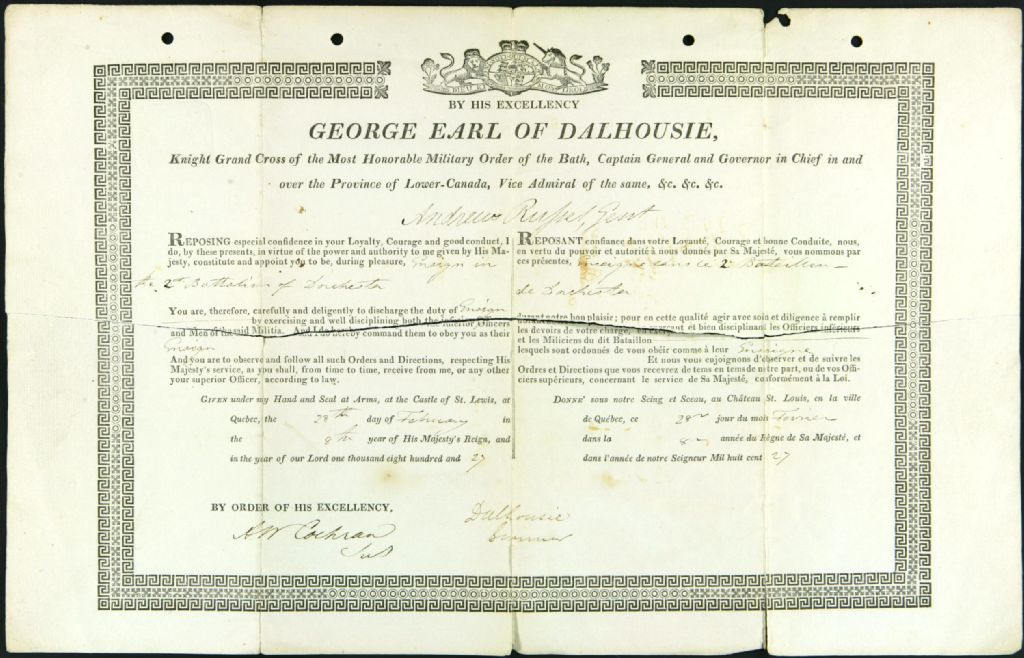 BY HIS EXCELLENCY
GEORGE EARL OF DALHOUSIE,
Knight Grand Cross of the Most Honorable Military Order of the Bath, Captain General and Governor in Chief in and
over the Province of Lower-Canada, Vice Admiral of the same, &c. &c. &c.
Andrew Russel, Gent
REPOSING especial confidence in your Loyalty, Courage and good conduct, I
do, by these presents, in virtue of the power and authority to me given by His Ma-
jesty, constitute and appoint you to be, during pleasure, Ensign in
the 2d Battalion of Dorchester
You are, therefore, carefully and deligently to discharge the duty of Ensign
by exercising and well disciplining both the Inferior Officers
and Men of the said Militia. And I do hereby command them to obey you as their
Ensign
And you are to observe and follow all such Orders and Directions, respecting His
Majesty's service, as you shall, from time to time, receive from me, or any other
your superior Officer, according to law.
GIVEN under my Hand and Seal at Arms, at the Castle of St. Lewis, at
Quebec, the 28th day of February in
the 8th year of His Majesty's Reign, and
in the year of our Lord one thousand eight hundred and 27
REPOSANT confiance dans votre Loyauté, Courage et bonne Conduite, nous,
en vertu du pouvoir et autorité à nous donnés par Sa Majesté, vous nommons par
ces présentes, enseigne dans le 2e Bataillon
de Dorchester
durant notre bon plaisir; pour en cette qualité agir avec soin et diligence à remplir
les devoirs de votre charge, en exerçant et bien disciplinant les Officiers inférieurs
et les Miliciens du dit Bataillon
lesquels sont ordonnés de vous obéir comme à leur Enseigne
Et nous vous enjoignons d'observer et de suivre les
Ordres et Directions que vous recevrez de tems en tems de notre part, ou de vos Offi-
ciers supérieurs, concernant le service de Sa Majesté, conformément à la Loi.
DONNE' sous notre Seing et Sceau, au Château St. Louis, en la ville
de Québec, ce 28e jour du mois Fevrier
dans la 8e année du Règne de Sa Majesté, et
dans l'année de notre Seigneur Mil huit cent 27
BY ORDER OF HIS EXCELLENCY,
A W Cochran
Dalhousie
Governor